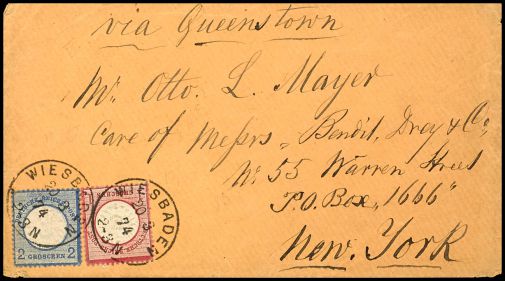 via Queenstown
Mr. Otto. L. Mayer
Care of Messrs. Bendit, Drey & Co,
No 55 Warren Street
P.O. Box "1666"
New. York
WIESBADEN
WIESBADEN
74
2 GROSCHEN 2